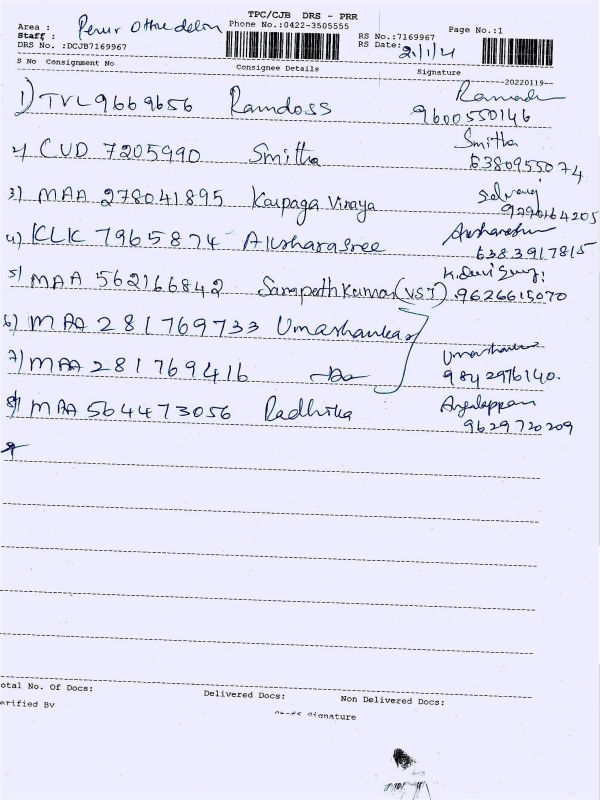 TPC/CJB DRS - PRR
Area : Perur Phone No.:0422-3505555 Page No.:1
Staff : RS No.:7169967
DRS No. :DCJB7169967 RS Date:
S No Consignment No Consignee Details Signature
--20220119--
1) TVL 9669656 Ramdoss
9600550146
2) CUD 7205990 Smitha Smitha
6380955074
3) MAA 278041895 Karpaga Vinaya
4) KLK 7965874 Aksharasree
6383917815
5) MAA 562166842 Sampath Kumar (VST) 9626615070
6) MAA 281769733 Umashankar
7) MAA 281769416 -Do- Umashankar
9842976140.
8) MAA 564473056 Radhika
9629720209
otal No. Of Docs: Delivered Docs: Non Delivered Docs:
erified By
Signature